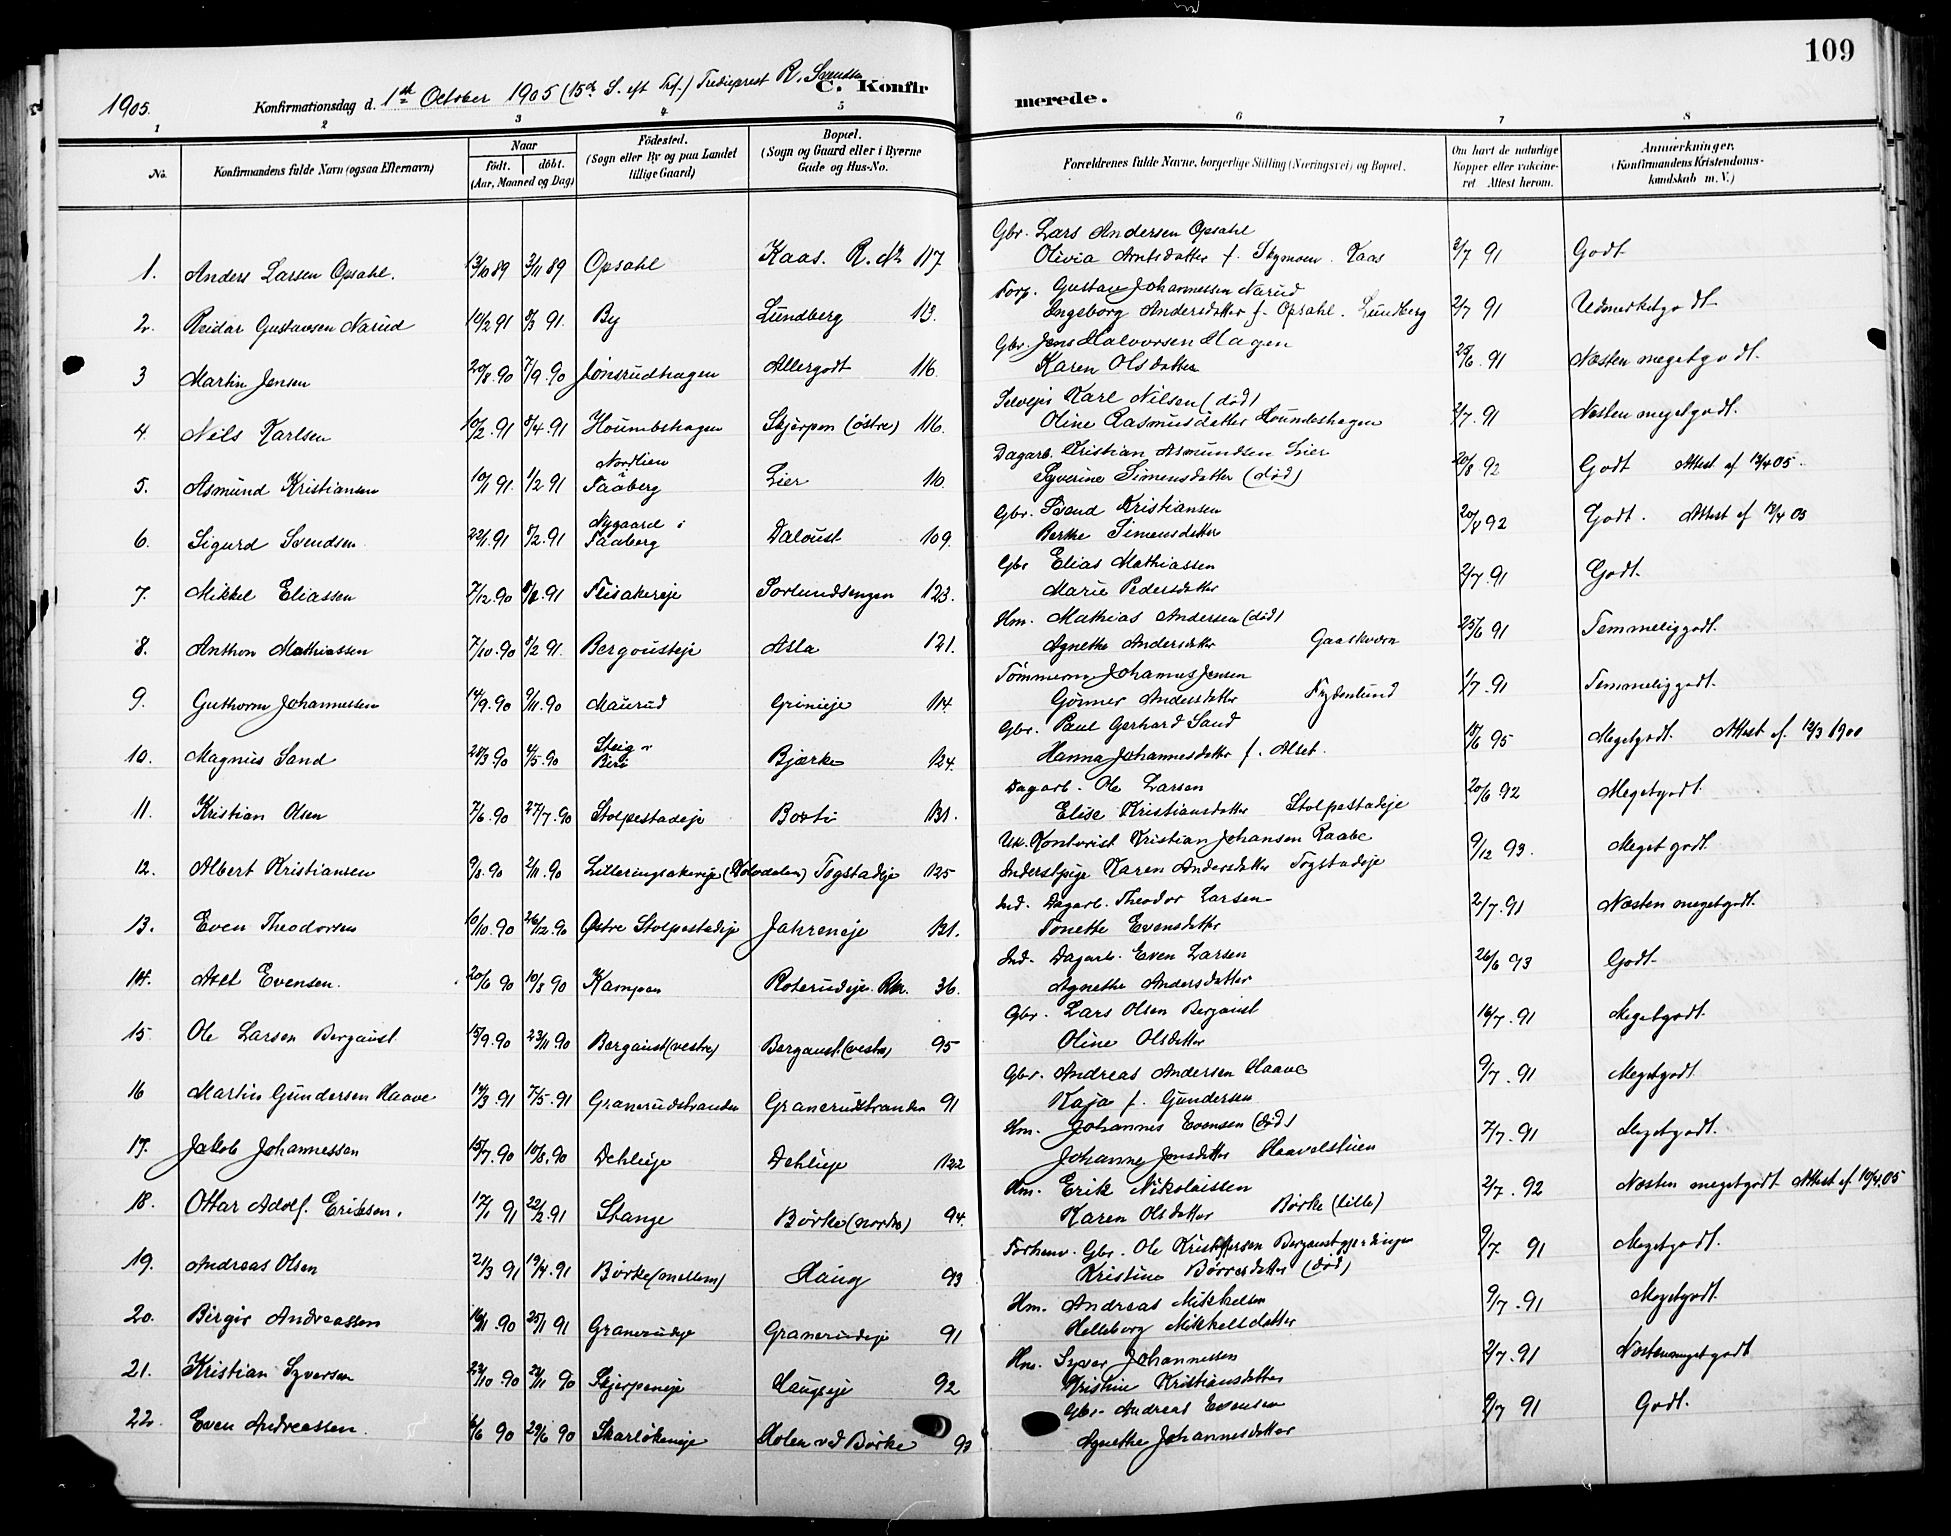 109
1905.
Konfirmationsdag d. 1ste October 1905 (15de S. eft Trf.) Tredieprest R. Svendsen
C. Konfirmerede.
1 2 3 4 5 6 7 8
No.
Konfirmandens fulde Navn (ogsaa Efternavn)
Naar
födt. döbt.
(Aar, Maaned og Dag)
Födested.
(Sogn eller By og paa Landet
tillige Gaard)
Bopæl.
(Sogn og Gaard eller i Byerne
Gade og Hus-No.
Forældrenes fulde Navne, borgerlige Stilling (Næringsvei) og Bopæl.
Om havt de naturlige
Kopper eller vakcine-
ret Attest herom.
Anmærkninger.
(Konfirmandens Kristendoms-
kundskab m. V.)
Gbr. Lars Andersen Opsahl
1. Anders Larsen Opsahl. 13/10 89 3/11 89 Opsahl Kaas. R. No 117 Olivia Arntsdatter f. Skymoen. Kaas 2/7 91 Godt
Forp. Gustav Johannessen Narud
2. Reidar Gustavsen Narud 10/2 91 8/3 91. By Lundberg 113. Ingeborg Andersdatter f. Opsahl. Lundberg 2/7 91 Udmerketgodt
Gbr. Jens Halvorsen Hagen
3 Martin Jensen 20/8.90 7/9.90 Jönsrudhagen Allergodt 116. Karen Olsdatter 25/6.91 Næsten megetgodt.
Selveier Karl Nilsen (död)
4. Nils Karlsen 10/2.91 8/4.91 Houmbshagen Skjerpen (östre) 116. Oline Rasmusdatter 2/7.91 Næsten megetgodt.
Dagarb. Kristian Asmundsen Lier
5. Asmund Kristiansen 10/1 91. 1/2 91 Nordlien i Faaberg Lier 110. Syverine Simensdatter (död) 20/8 92 Godt Attest af 12/4 05.
Gbr. Svend Kristiansen
6. Sigurd Svendsen 22/1.91 8/2.91 Nygaard i Faaberg Daloust 109. Berthe Simensdatter 20/8 92 Godt. Attest af 12/4 05
Gbr Elias Mathiassen
7. Mikkel Eliassen 7/12.90 8/2.91 Flisakereje Sorlundsengen 123. Marie Pedersdatter 2/7.91 Godt.
Hm. Mathias Andersen (död)
8. Anthon Mathiassen 7/10.90 8/2 91. Bergousteje Asla 121. Agnethe Andersdatter Gaaskværn 25/6 91 Temmeliggodt.
Tömmerm Johannes Jensen
9. Guthorm Johannessen 14/9.90 9/11.90 Maurud Grinieje 114. Gunner Andersdatter Frydenlund 1/7.91 Temmeliggodt.
Gbr. Paul Gerhard Sand
10. Magnus Sand 28/3.90 4/5.90 Steig Bjærke 124. Hanna Johannesdatter f. Alset. 15/6 95 Megetgodt. Attest af 12/3 1900
Dagarb. Ole Larsen
11. Kristian Olsen 7/6.90 27/7.90 Stolpestadeje 131. Elise Kristiansdatter Stolpestadeje 20/6 92 Megetgodt.
Uk. Kontorist Kristian Johansen Raabe
12. Albert Kristiansen 9/8.90 2/11.90 Lilleringsakereje Togstadeje 125 Karen Andersdatter Togstadeje 9/12 93. Meget godt.
Ind. Dagarb. Theodor Larsen
13. Even Theodorsen 10/10.90 26/12.90 Östre Stolpestadeje Jahreneje 131. Tonette Evensdatter 2/7.91 Næsten megetgodt.
Ind. Dagarb. Even Larsen
14. Axel Evensen. 20/6 90 10/8 90 Kampen Roterudeje. Rn. 36. Agnethe Andersdatter 26/6 93 Godt.
Gbr. Lars Olsen Bergaust
15 Ole Larsen Bergaust 15/9.90 23/11.90 Bergaust (vestre) Bergaust (vestre) 95 Oline Olsdatter 16/7.91 Megetgodt.
Gbr. Andreas Andersen Haave
16 Martin Gundersen Haave 14/3.91 7/5.91 Granerudstranden Granerudstranden 91 Kaja f. Gundersen 9/7.91 Megetgodt.
Hm. Johannes Evensen (död)
17. Jakob Johannessen 15/7.90 10/8.90 Dehlieje Dehlieje 122 Johanne Jonsdatter 7/7.91 Megetgodt.
Hm. Erik Nikolaissen
18. Ottar Adolf. Eriksen. 17/1 91 22/2.91 Stange Börke (nordre) 94. Karen Olsdatter Börke (lille) 2/7.92 Næsten megetgodt Attest af 10/4.05
Forhenv. Gbr. Ole Kristoffersen
19. Andreas Olsen 21/3 91 19/4.91 Börke (mellem) Haug 93 Kristine Börresdatter (död) 9/7. 91 Megetgodt.
Hm. Andreas Mikkelsen
20. Birgir Andreassen 16/11.90 25/1 91 Granerudeje Granerudeje 91 Helleborg Mikkelsdatter 9/7.91 Megetgodt.
Hm. Syver Johannessen
21. Kristian Syversen 22/10.90 23/11 90 Skjerpeneje Haugseje 92 Kristine Kristiansdatter 2/7.91 Næstenmegetgodt
Gbr. Andreas Evensen
22. Even Andreassen. 6/6 90 29/6 90 Skarlökeneje Holen vd Börke 90 Agnethe Johannesdatter 2/7 91 Godt.